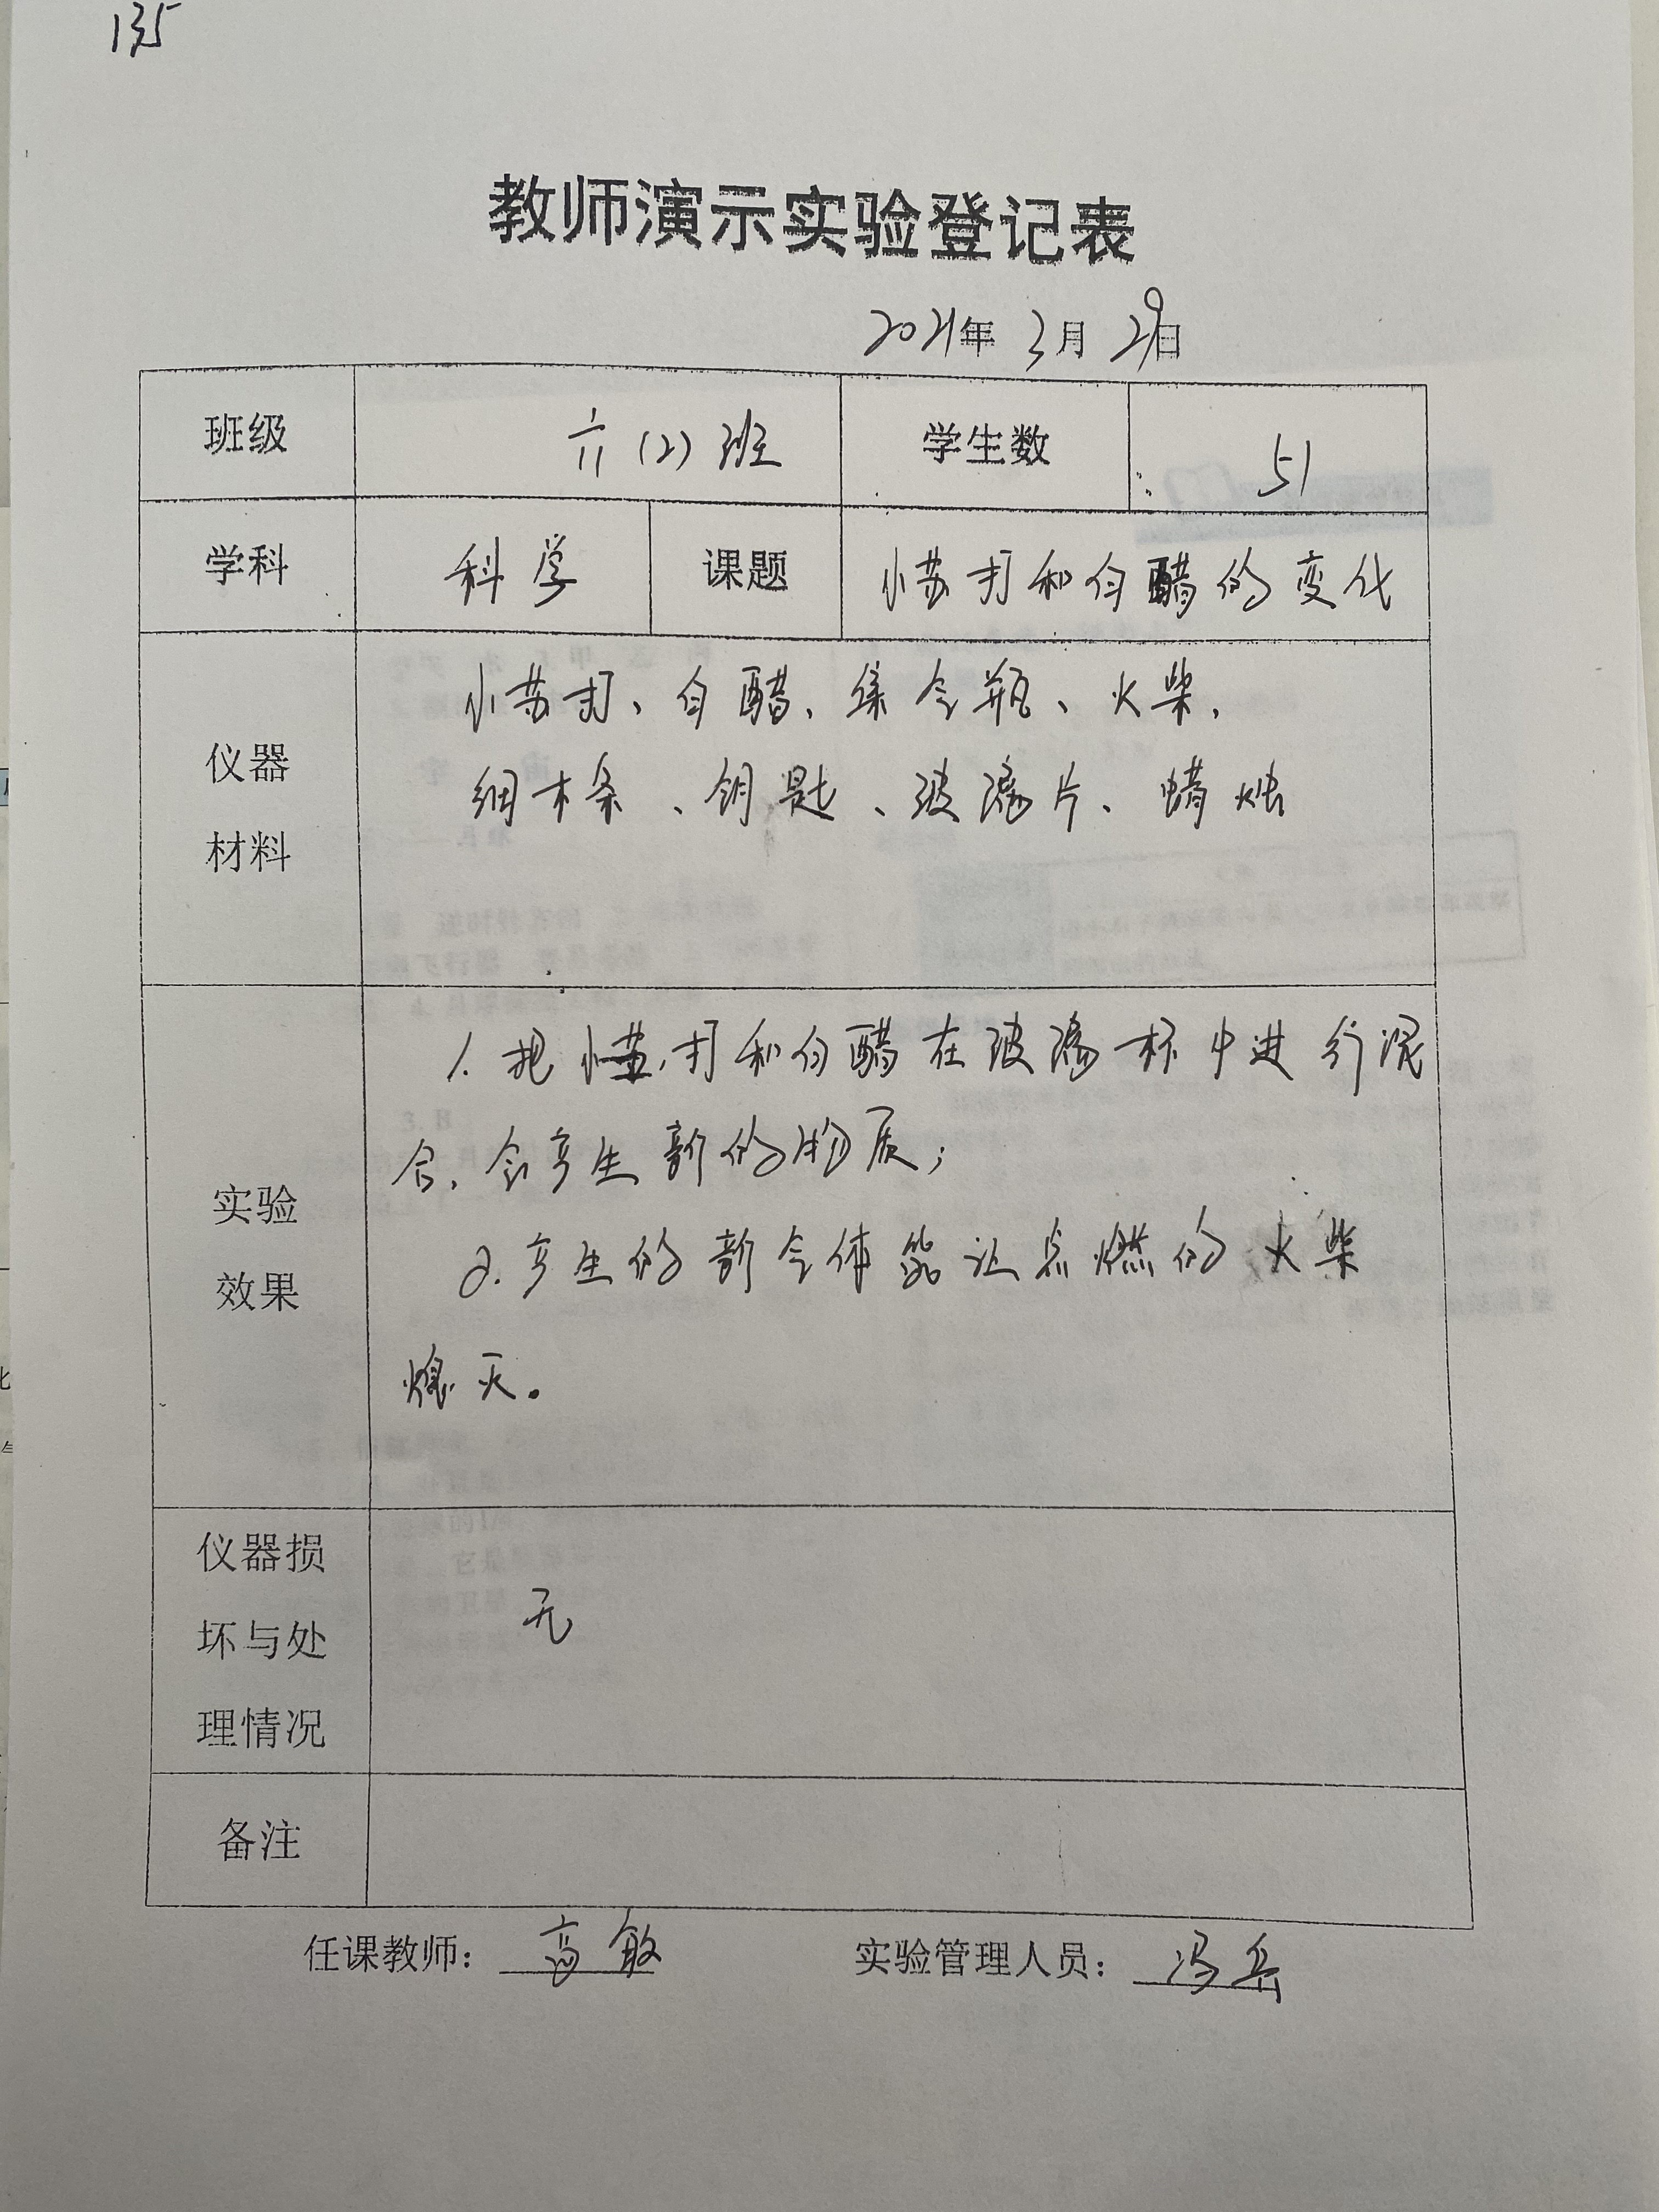 135
教师演示实验登记表
2021年 3月 29日
班级 六(2)班 学生数 51
学科 科学 课题 小苏打和白醋的变化
仪器
材料
小苏打、白醋、集气瓶、火柴、
细木条、钥匙、玻璃片、蜡烛
实验
效果
1. 把小苏打和白醋在玻璃杯中进行混
合,会产生新的物质;
2. 产生的新气体能让点燃的火柴
熄灭。
仪器损
坏与处
理情况
无
备注
任课教师: 高敏 实验管理人员: 冯岳